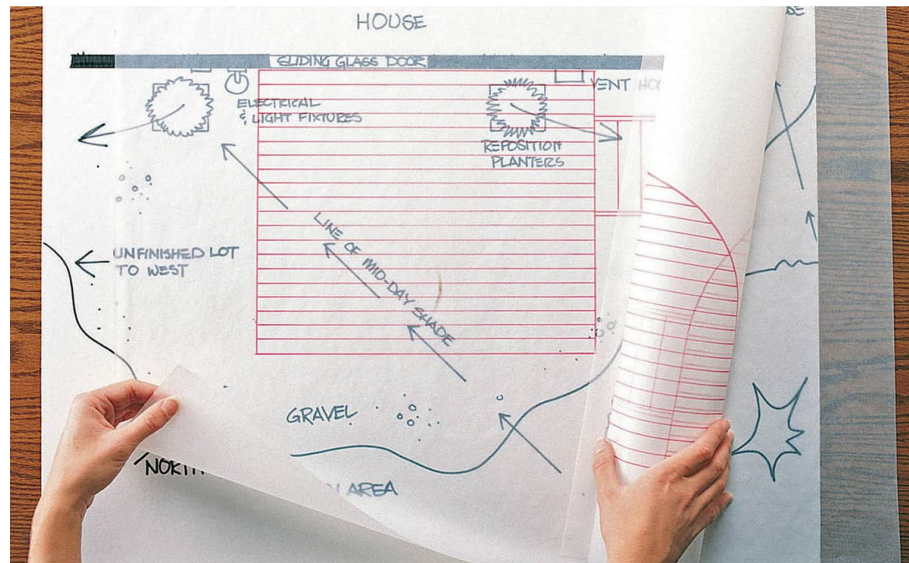 HOUSE
SLIDING GLASS DOOR
ELECTRICAL
& LIGHT FIXTURES
VENT
REPOSITION
PLANTERS
LINE OF MID-DAY SHADE
UNFINISHED LOT
TO WEST
GRAVEL
AREA